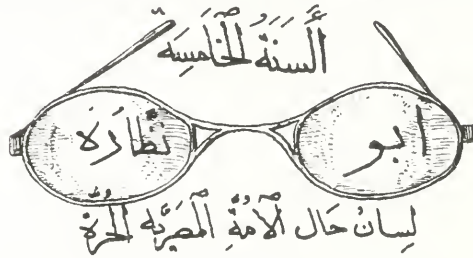 أَلسَنَةُ الخَامِسَة
ابو نظارة
لِسانُ حَال اْلأمّةِ اْلمَصرِيّه الحُرّة